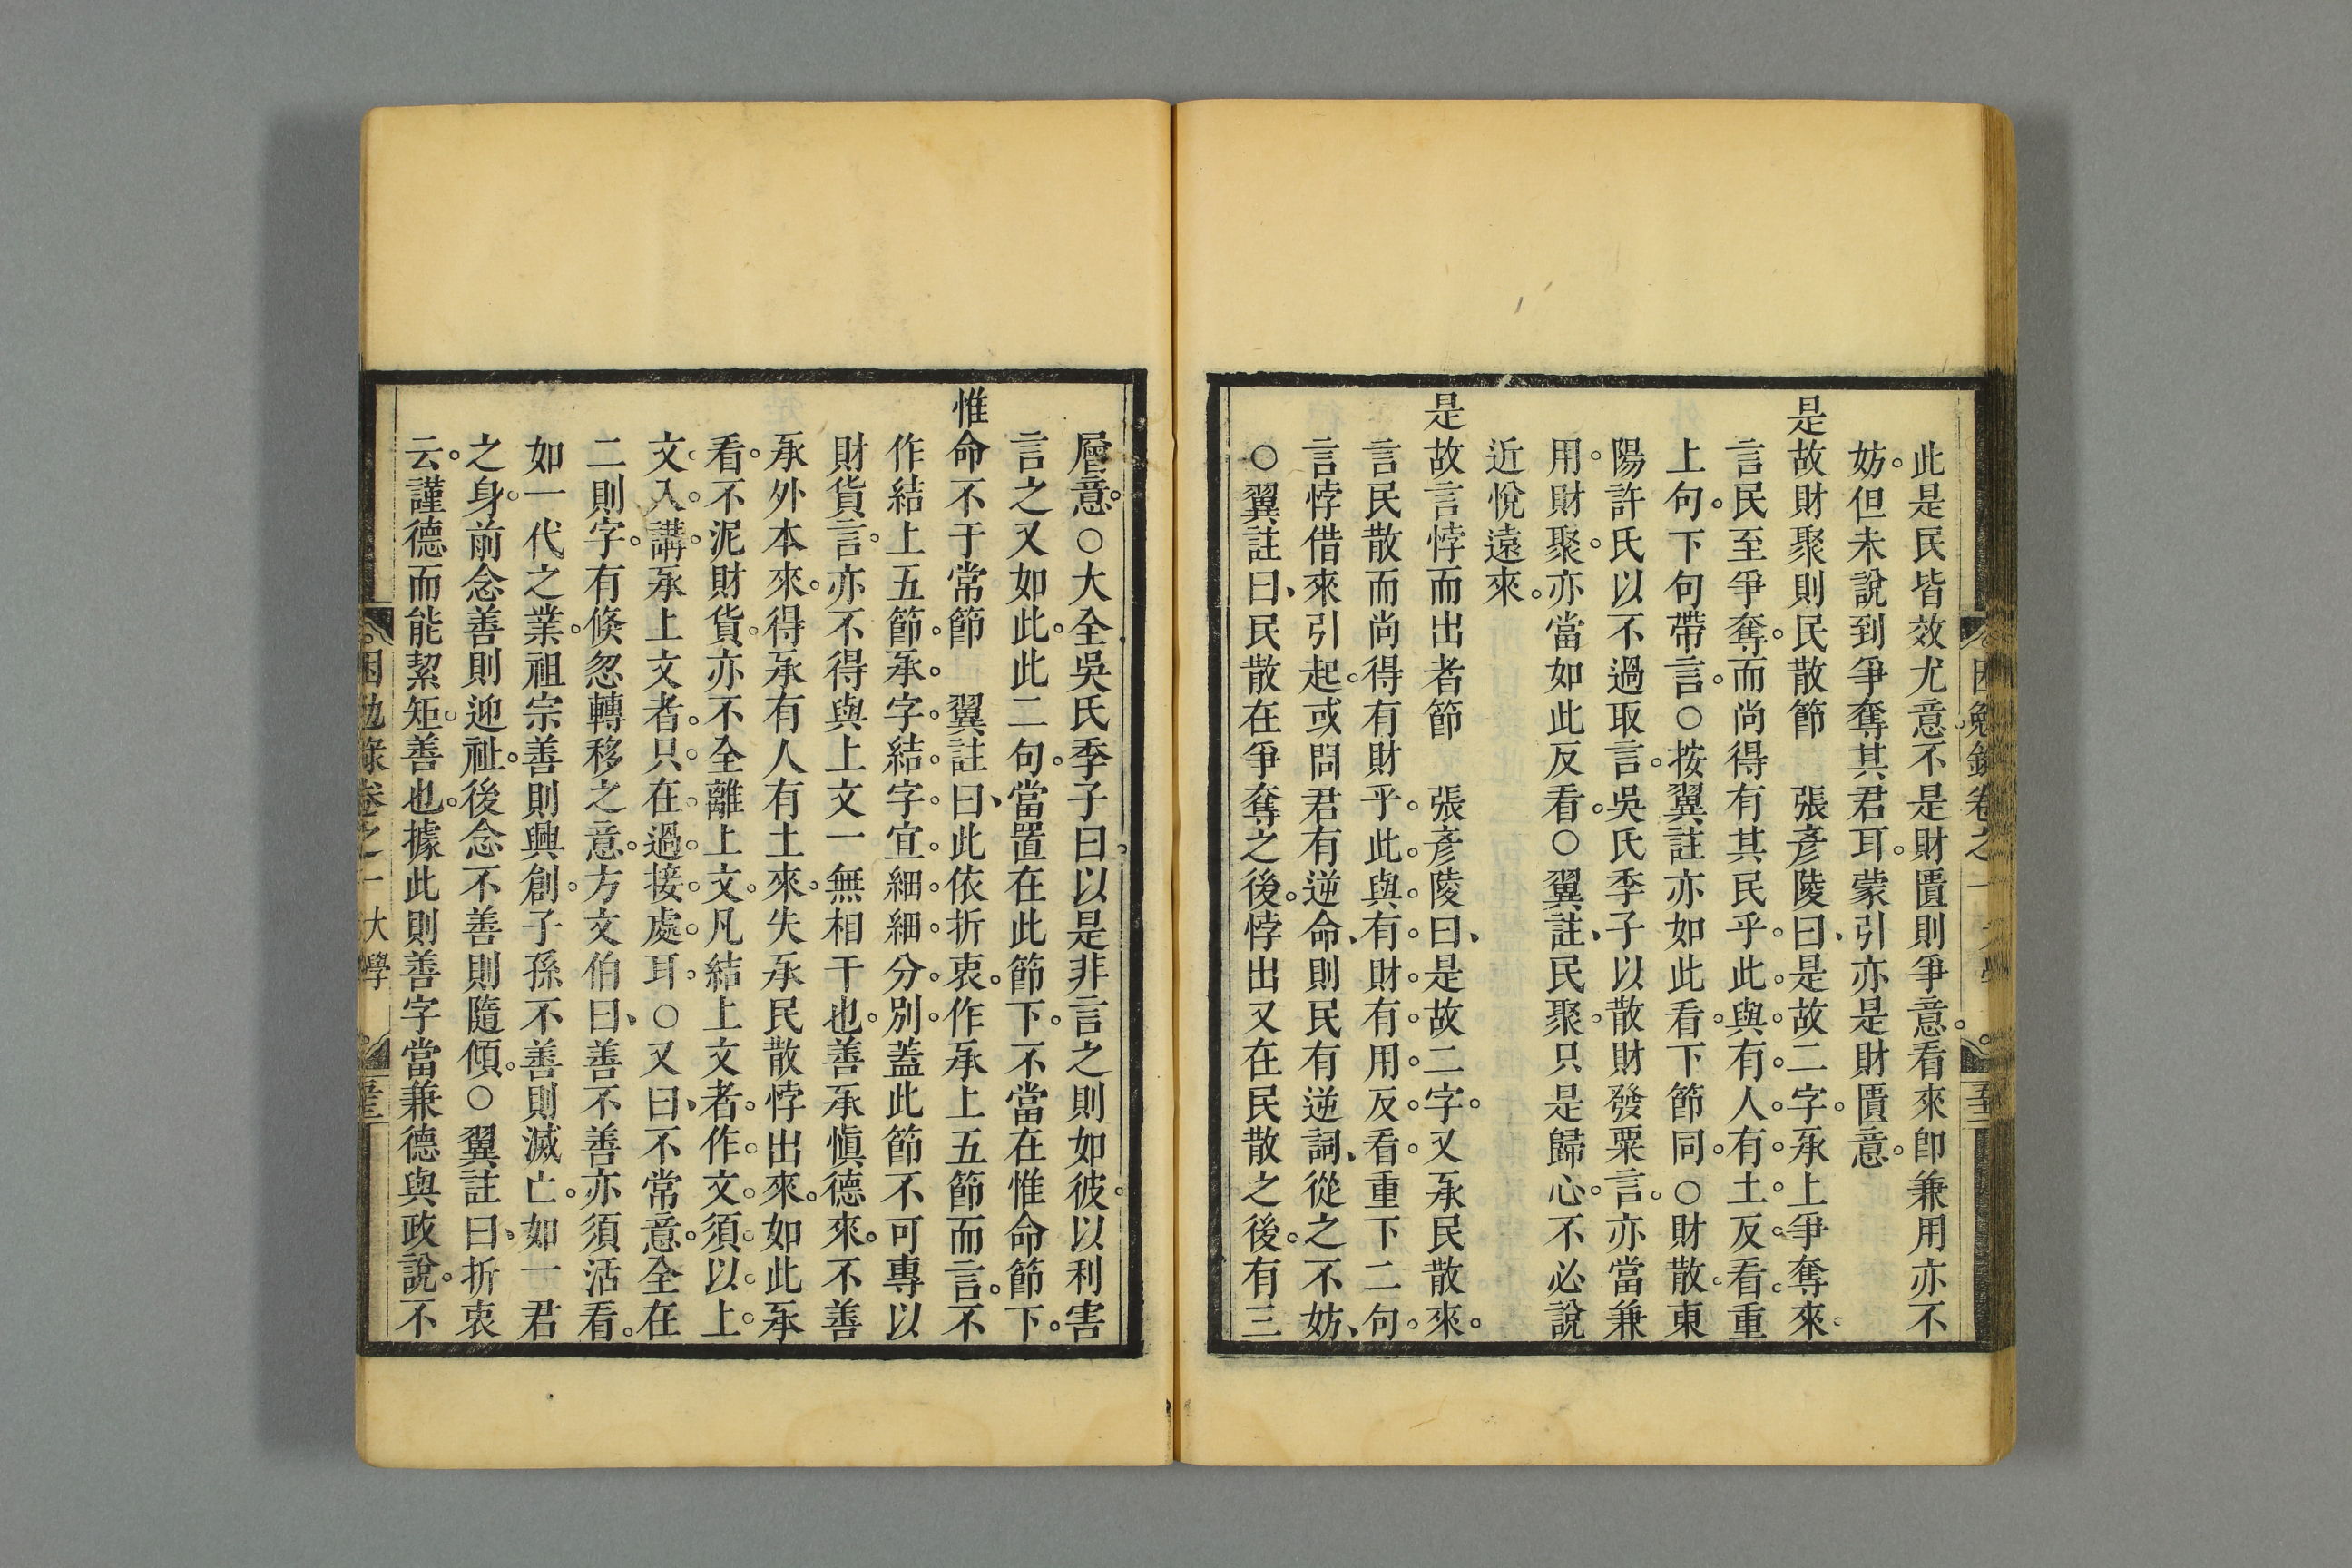 此是民皆效尤意不是財匱則爭意。看來卽兼用亦不
妨。但未說到爭奪其君耳。蒙引亦是財匱意。
是故財聚則民散節　張彥陵曰、是故二字。承上爭奪來。
言民至爭奪。而尚得有其民乎。此與有人有土反看。重
上句。下句帶言。○按翼註亦如此看。下節同。○財散。東
陽許氏以不過取言。吳氏季子以散財發粟言。亦當兼
用。財聚。亦當如此反看。○翼註、民聚。只是歸心。不必說
近悅遠來。
是故言悖而出者節　張彥陵曰、是故二字。又承民散來。
言民散而尚得有財乎。此與有財有用反看。重下二句。
言悖借來引起。或問君有逆命、則民有逆詞、從之不妨、
○翼註曰、民散在爭奪之後。悖出又在民散之後。有三
層意。○大全吳氏季子曰。以是非言之則如彼。以利害
言之又如此。此二句。當置在此節下。不當在惟命節下。
惟命不于常節　翼註曰、此依折衷。作承上五節而言。不
作結上五節。承字。結字。宜細細分別。蓋此節不可專以
財貨言。亦不得與上文一無相干也。善承愼德來。不善
承外本來。得承有人有土來。失承民散悖出來。如此承
看。不泥財貨。亦不全離上文。凡結上文者。作文須以上
文入講。承上文者。只在過接處耳。○又曰、不常意。全在
二則字。有倏忽轉移之意。方文伯曰、善不善亦須活看。
如一代之業。祖宗善則興創。子孫不善則滅亡。如一君
之身。前念善則迎祉。後念不善則隨傾。○翼註曰、折衷
云。謹德而能絜矩。善也。據此則善字當兼德與政說。不
困勉錄卷之一　大學